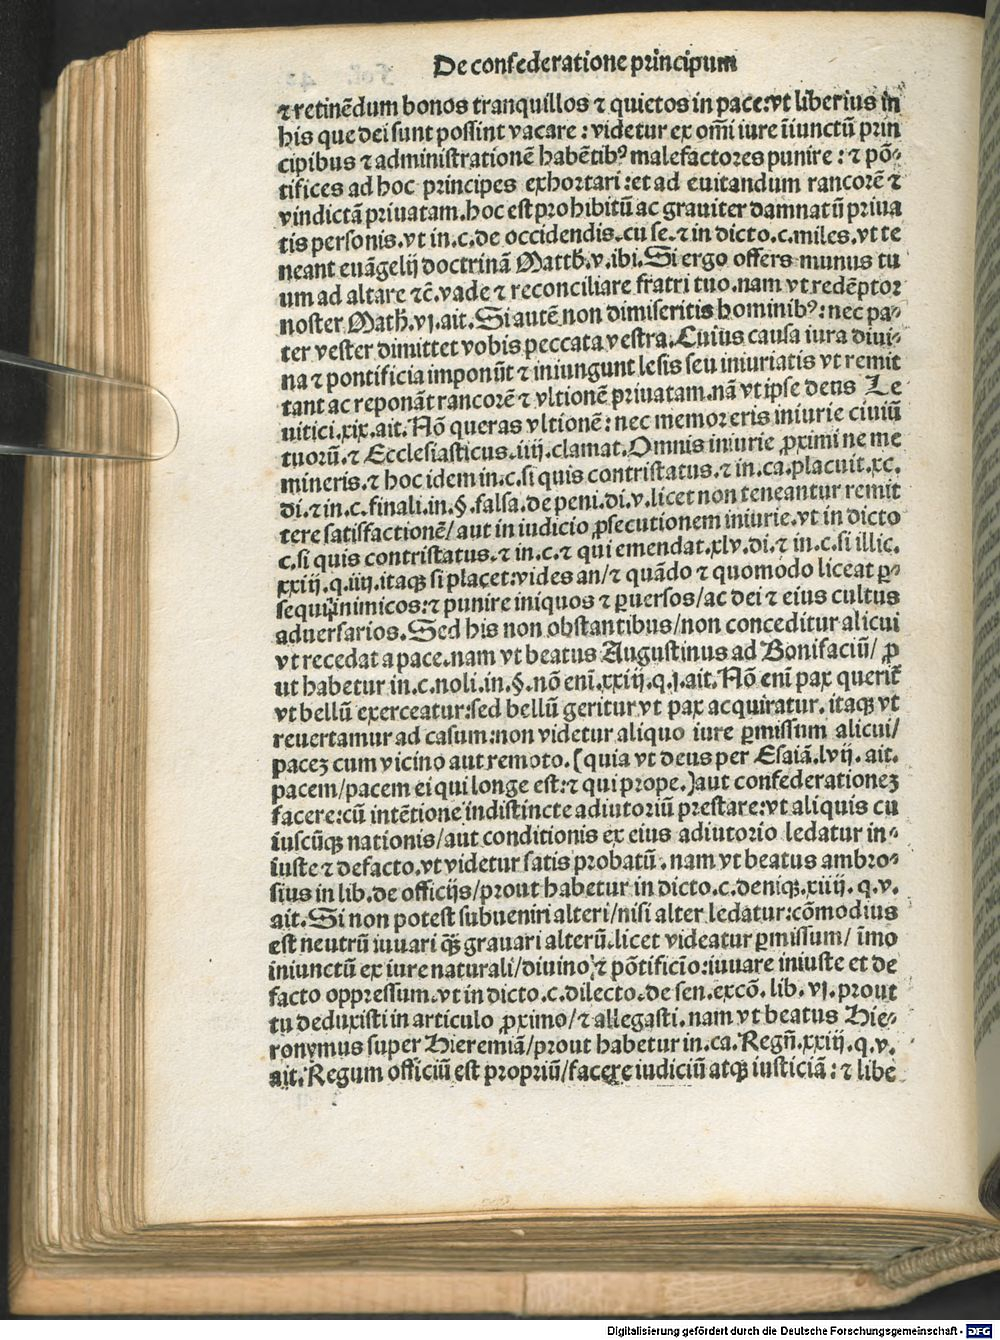 De confederatione principum
⁊ retinẽdum bonos tranquillos ⁊ quietos in pace:vt liberius in
his que dei sunt possint vacare : videtur ex om̃i iure iĩunctũ prin
cipibus ⁊ administrationẽ habẽtibꝰ malefactores punire : ⁊ põ-
tifices ad hoc principes exhortari : et ad euitandum rancorẽ ⁊
vindictã priuatam. hoc est prohibitũ ac grauiter damnatũ priua
tis personis. vt in. c. de occidendis. cu se. ⁊ in dicto. c. miles. vt te
neant euãgelij doctrinã Matth̃. v. ibi. Si ergo offers munus tu
um ad altare ⁊c̃. vade ⁊ reconciliare fratri tuo. nam vt redẽptor
noster Math̃. vj. ait. Si autẽ non dimiseritis hominibꝰ: nec pa-
ter vester dimittet vobis peccata vestra. Cuius causa iura diui-
na ⁊ pontificia imponũt ⁊ iniungunt lesis seu iniuriatis vt remit
tant ac reponãt rancorẽ ⁊ vltionẽ priuatam. nã vt ipse deus Le
uitici. xix. ait. Nõ queras vltionẽ : nec memor eris iniurie ciuiũ
tuorũ. ⁊ Ecclesiasticus. iiij. clamat. Omnis iniurie ꝓximi ne me
mineris. ⁊ hoc idem in. c. si quis contristatus. ⁊ in. ca. placuit. xc.
di. ⁊ in. c. finali. in. §. falsa. de peni. di. v. licet non teneantur remit
tere satisfactionẽ/ aut in iudicio ꝓsecutionem iniurie. vt in dicto
c. si quis contristatus. ⁊ in. c. ⁊ qui emendat. xlv. di. ⁊ in. c. si illic.
xxiij. q. iiij. itaqꝫ si placet: vides an/ ⁊ quãdo ⁊ quomodo liceat ꝑ-
sequi inimicos: ⁊ punire iniquos ⁊ ꝑuersos/ ac dei ⁊ eius cultus
aduersarios. Sed his non obstantibus/ non conceditur alicui
vt recedat a pace. nam vt beatus Augustinus ad Bonifaciũ/ ꝓ
ut habetur in. c. noli. in. §. nõ enĩ. xxiij. q. j. ait. Nõ enĩ pax querit̃
vt bellũ exerceatur: sed bellũ geritur vt pax acquiratur. itaqꝫ vt
reuertamur ad casum: non videtur aliquo iure ꝑmissum alicui/
paceꝫ cum vicino aut remoto. (quia vt deus per Esaiã. lvij. ait.
pacem/ pacem ei qui longe est: ⁊ qui prope.) aut confederationeꝫ
facere: cũ intẽtione indistincte adiutoriũ prestare: vt aliquis cu
iuscũqꝫ nationis/ aut conditionis ex eius adiutorio ledatur in-
iuste ⁊ defacto. vt videtur satis probatũ. nam vt beatus ambro-
sius in lib. de officijs/ prout habetur in dicto. c. deniqꝫ. xiiij. q. v.
ait. Si non potest subueniri alteri/ nisi alter ledatur: cõmodius
est neutrũ iuuari qꝫ̃ grauari alterũ. licet videatur ꝑmissum/ ĩmo
iniunctũ ex iure naturali/ diuino/ ⁊ põtificio: iuuare iniuste et de
facto oppressum. vt in dicto. c. dilecto. de sen. excõ. lib. vj. prout
tu deduxisti in articulo ꝓximo/ ⁊ allegasti. nam vt beatus Hie-
ronymus super Hieremiã/ prout habetur in. ca. Regũ. xxiij. q. v.
ait. Regum officiũ est propriũ/ facere iudiciũ atqꝫ iusticiã : ⁊ libe
Digitalisierung gefördert durch die Deutsche Forschungsgemeinschaft - DFG